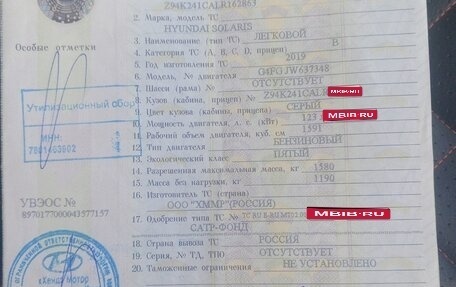 Z94K241CALR162863
2. Марка, модель ТС
HYUNDAI SOLARIS
3. Наименование (тип ТС) ЛЕГКОВОЙ
4. Категория ТС (А, В, С, D, прицеп) В
5. Год изготовления ТС 2019
6. Модель, № двигателя G4FG JW637348
7. Шасси (рама) № ОТСУТСТВУЕТ
8. Кузов (кабина, прицеп) № Z94K241CALR
MBIB.RU
9. Цвет кузова (кабины, прицепа) СЕРЫЙ
10. Мощность двигателя, л. с. (кВт) 123
MBIB.RU
11. Рабочий объем двигателя, куб. см 1591
12. Тип двигателя БЕНЗИНОВЫЙ
13. Экологический класс ПЯТЫЙ
14. Разрешенная максимальная масса, кг 1580
15. Масса без нагрузки, кг 1190
16. Изготовитель ТС (страна)
ООО "ХММР"(РОССИЯ)
17. Одобрение типа ТС № ТС RU Е-RU.МТ02.00
MBIB.RU
САТР-ФОНД
18. Страна вывоза ТС РОССИЯ
19. Серия, № ТД, ТПО ОТСУТСТВУЕТ
20. Таможенные ограничения НЕ УСТАНОВЛЕНО
Особые отметки
Утилизационный сбор
ИНН:
7801463902
УВЭОС №
897017700043577157
«Хендэ Мотор